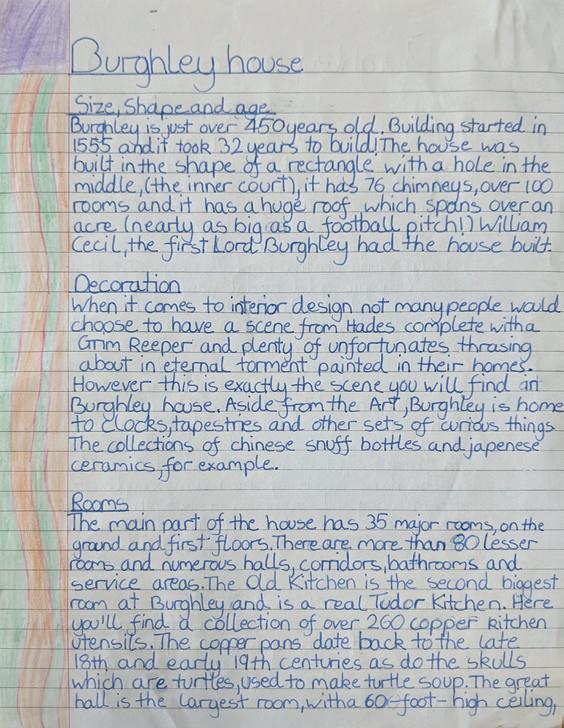 Burghley house
Size, Shape and age
Burghley is just over 450 years old. Building started in
1555 and it took 32 years to build! The house was
built in the shape of a rectangle with a hole in the
middle, (the inner court), it has 76 chimneys, over 100
rooms and it has a huge roof, which spans over an
acre (nearly as big as a football pitch!) William
Cecil, the first Lord Burghley had the house built.
Decoration
When it comes to interior design not many people would
choose to have a scene from Hades complete with a
Grim Reeper and plenty of unfortunates thrasing
about in eternal torment painted in their homes.
However this is exactly the scene you will find in
Burghley house. Aside from the Art, Burghley is home
to clocks, tapestries and other sets of curious things
The collections of chinese snuff bottles and japenese
ceramics, for example.
Rooms
The main part of the house has 35 major rooms, on the
ground and first floors. There are more than 80 lesser
rooms and numerous halls, corridors, bathrooms and
service areas. The Old Kitchen is the second biggest
room at Burghley and is a real Tudor Kitchen. Here
you'll find a collection of over 260 copper kitchen
utensils. The copper pans date back to the late
18th and early 19th centuries as do the skulls
which are turtles, used to make turtle soup. The great
hall is the largest room, with a 60-foot-high ceiling,